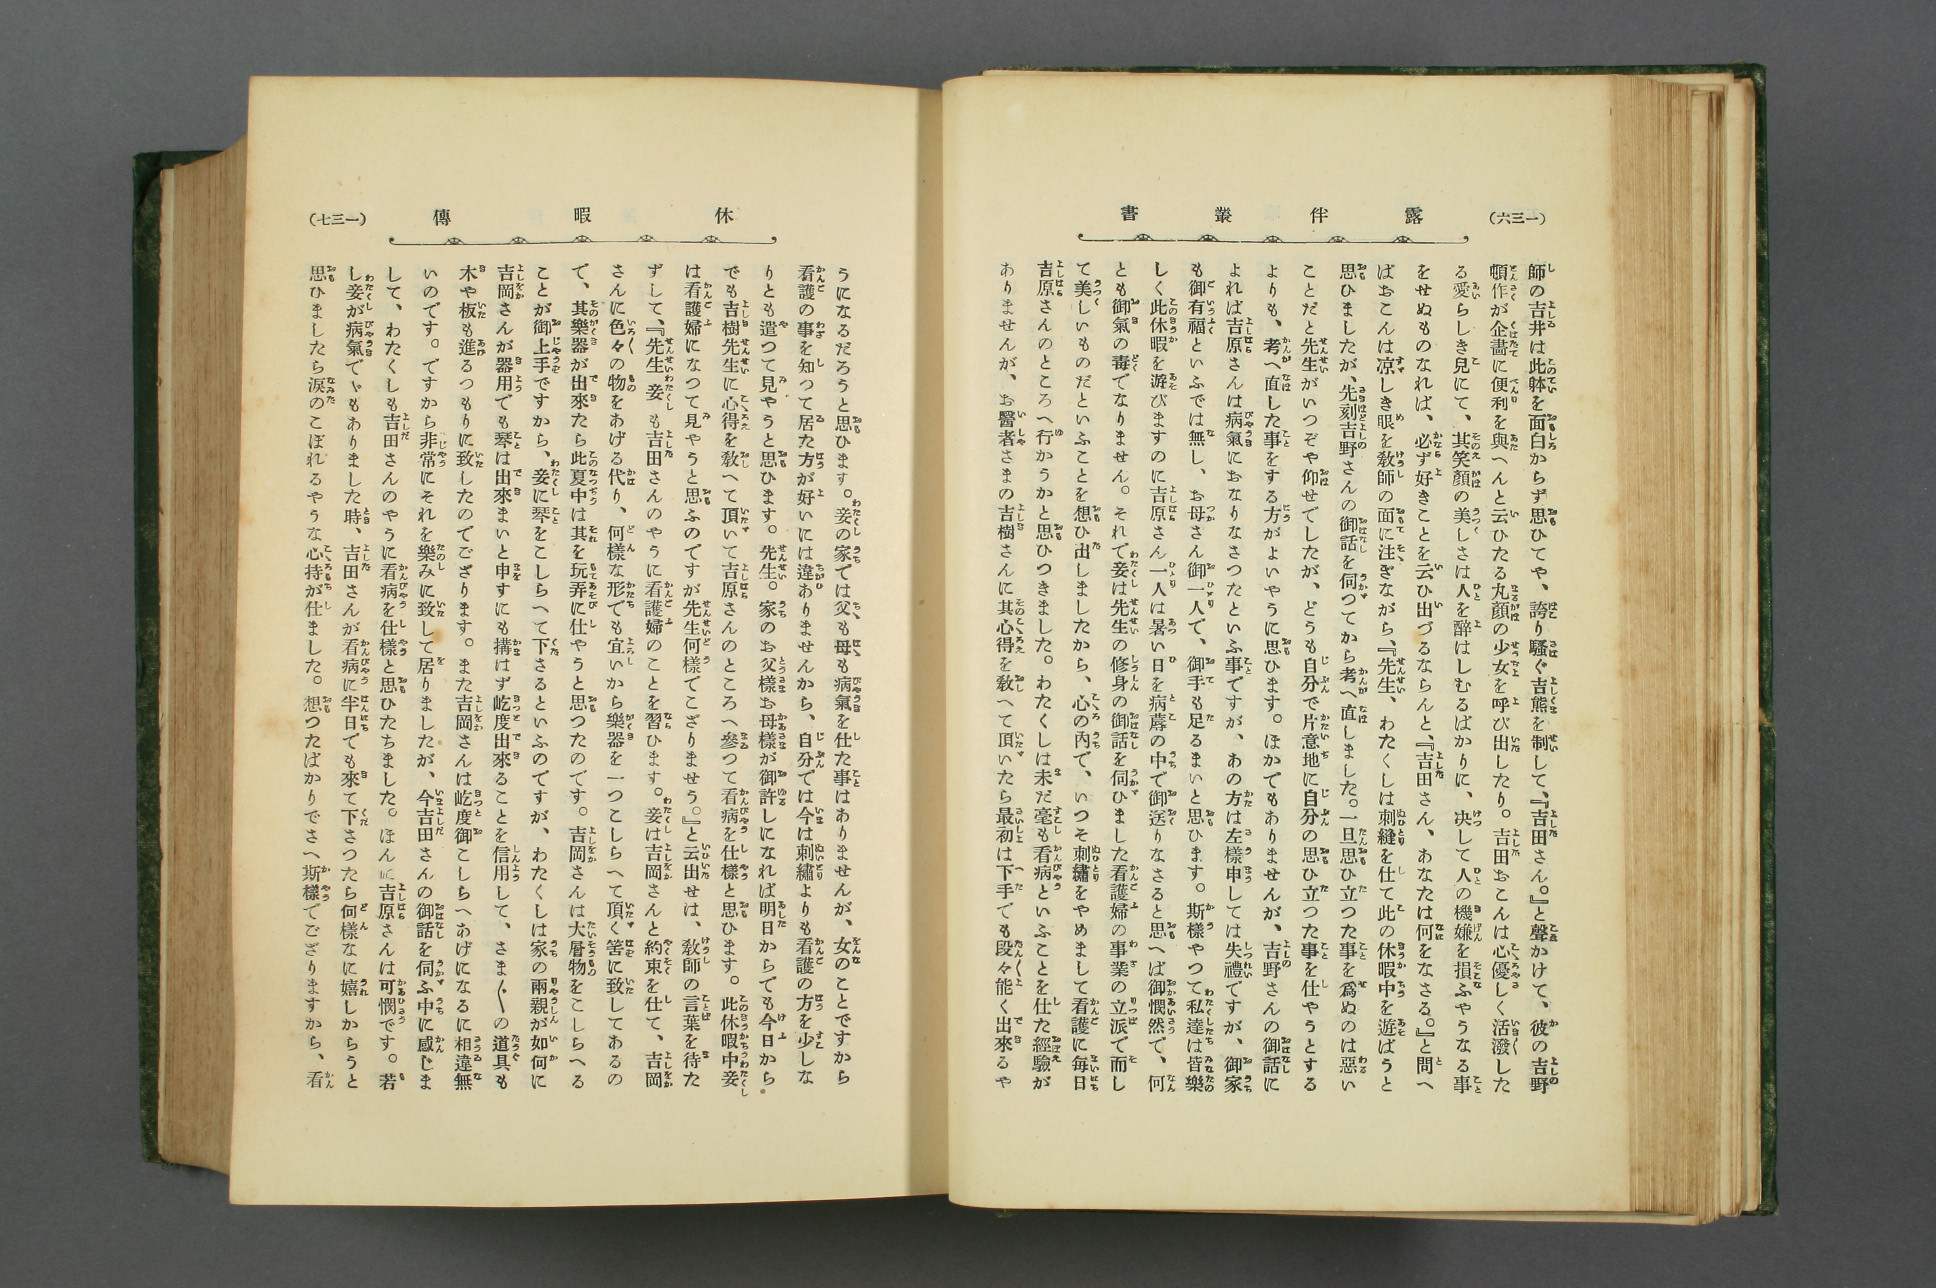 (一三六)
露伴叢書
師の吉井は此躰を面白からず思ひてや、誇り騷ぐ吉熊を制して、『吉田さん。』と聲かけて、彼の吉野
頓作が企畵に便利を與へんと云ひたる丸顔の少女を呼び出したり。吉田おこんは心優しく活潑した
る愛らしき兒にて、其笑顔の美しさは人を醉はしむるばかりに、决して人の機嫌を損ふやうなる事
をせぬものなれば、必ず好きことを云ひ出づるならんと、『吉田さん、あなたは何をなさる。』と問へ
ばおこんは凉しき眼を敎師の面に注ぎながら、『先生、わたくしは刺縫を仕て此の休暇中を遊ばうと
思ひましたが、先刻吉野さんの御話を伺つてから考へ直しました。一旦思ひ立つた事を爲ぬのは惡い
ことだと先生がいつぞや仰せでしたが、どうも自分で片意地に自分の思ひ立つた事を仕やうとする
よりも、考へ直した事をする方がよいやうに思ひます。ほかでもありませんが、吉野さんの御話に
よれば吉原さんは病氣におなりなさつたといふ事ですが、あの方は左樣申しては失禮ですが、御家
も御有福といふでは無し、お母さん御一人で、御手も足るまいと思ひます。斯樣やつて私達は皆樂
しく此休暇を游びますのに吉原さん一人は暑い日を病蓐の中で御送りなさると思へば御憫然で、何
とも御氣の毒でなりません。それで妾は先生の修身の御話を伺ひました看護婦の事業の立派で而し
て美しいものだといふことを想ひ出しましたから、心の内で、いつそ刺繡をやめまして看護に毎日
吉原さんのところへ行かうかと思ひつきました。わたくしは未だ毫も看病といふことを仕た經驗が
ありませんが、お醫者さまの吉樹さんに其心得を敎へて頂いたら最初は下手でも段々能く出來るや
休暇傳
(一三七)
うになるだろうと思ひます。妾の家では父も母も病氣を仕た事はありませんが、女のことですから
看護の事を知つて居た方が好いには違ありませんから、自分では今は刺繡よりも看護の方を少しな
りとも遣つて見やうと思ひます。先生。家のお父樣お母樣が御許しになれば明日からでも今日から
でも吉樹先生に心得を敎へて頂いて吉原さんのところへ參つて看病を仕樣と思ひます。此休暇中妾
は看護婦になつて見やうと思ふのですが先生何樣でござりませう。』と云出せは、敎師の言葉を待た
ずして、『先生妾も吉田さんのやうに看護婦のことを習ひます。妾は吉岡さんと約束を仕て、吉岡
さんに色々の物をあげる代り、何樣な形でも宜いから樂器を一つこしらへて頂く筈に致してあるの
で、其樂器が出來たら此夏中は其を玩弄に仕やうと思つたのです。吉岡さんは大層物をこしらへる
ことが御上手ですから、妾に琴をこしらへて下さるといふのですが、わたくしは家の兩親が如何に
吉岡さんが器用でも琴は出來まいと申すにも搆はず屹度出來ることを信用して、さま〲の道具も
木や板も進るつもりに致したのでござります。また吉岡さんは屹度御こしらへあげになるに相違無
いのです。ですから非常にそれを樂みに致して居りましたが、今吉田さんの御話を伺ふ中に感じま
して、わたくしも吉田さんのやうに看病を仕樣と思ひたちました。ほんに吉原さんは可憫です。若
し妾が病氣でゝもありました時、吉田さんが看病に半日でも來て下さつたら何樣なに嬉しからうと
思ひましたら淚のこぼれるやうな心持が仕ました。想つたばかりでさへ斯樣でござりますから、看